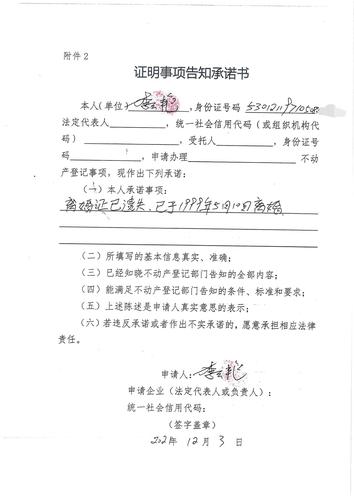 附件 2
证明事项告知承诺书
本人(单位)李云艳,身份证号码
法定代表人,统一社会信用代码(或组织机构代
码),受托人,身份证号
码,申请办理不动
产登记事项,现作出下列承诺:
(一)本人承诺事项:
离婚证已遗失,已于1999年5月10日离婚
(二)所填写的基本信息真实、准确;
(三)已经知晓不动产登记部门告知的全部内容;
(四)能满足不动产登记部门告知的条件、标准和要求;
(五)上述陈述是申请人真实意思的表示;
(六)若违反承诺或者作出不实承诺的,愿意承担相应法律
责任。
申请人:李云艳
申请企业(法定代表人或负责人):
统一社会信用代码:
(签字盖章)
年 12 月 3 日